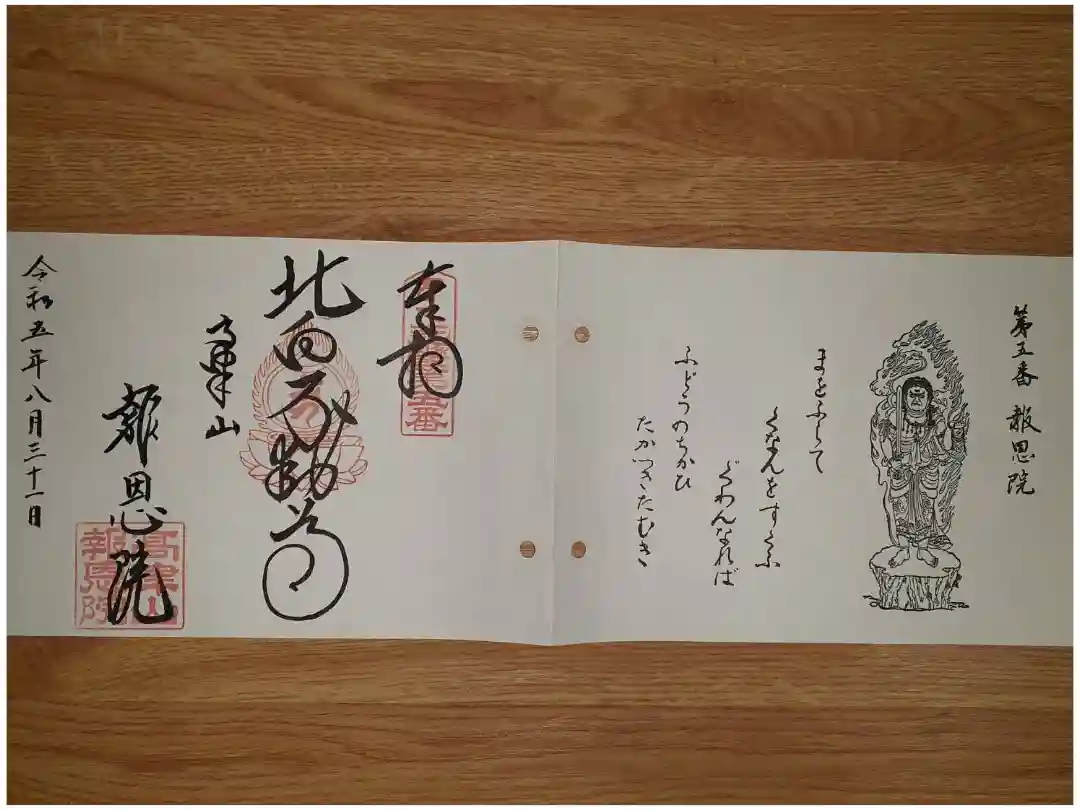 第五番 報恩院
まをふして
くなんをすくふ
ぐわんなれば
ふどうのちかひ
たかつきたむき
奉拝
北向不動尊
高津山
報恩院
高津山
報恩院
令和五年八月三十一日